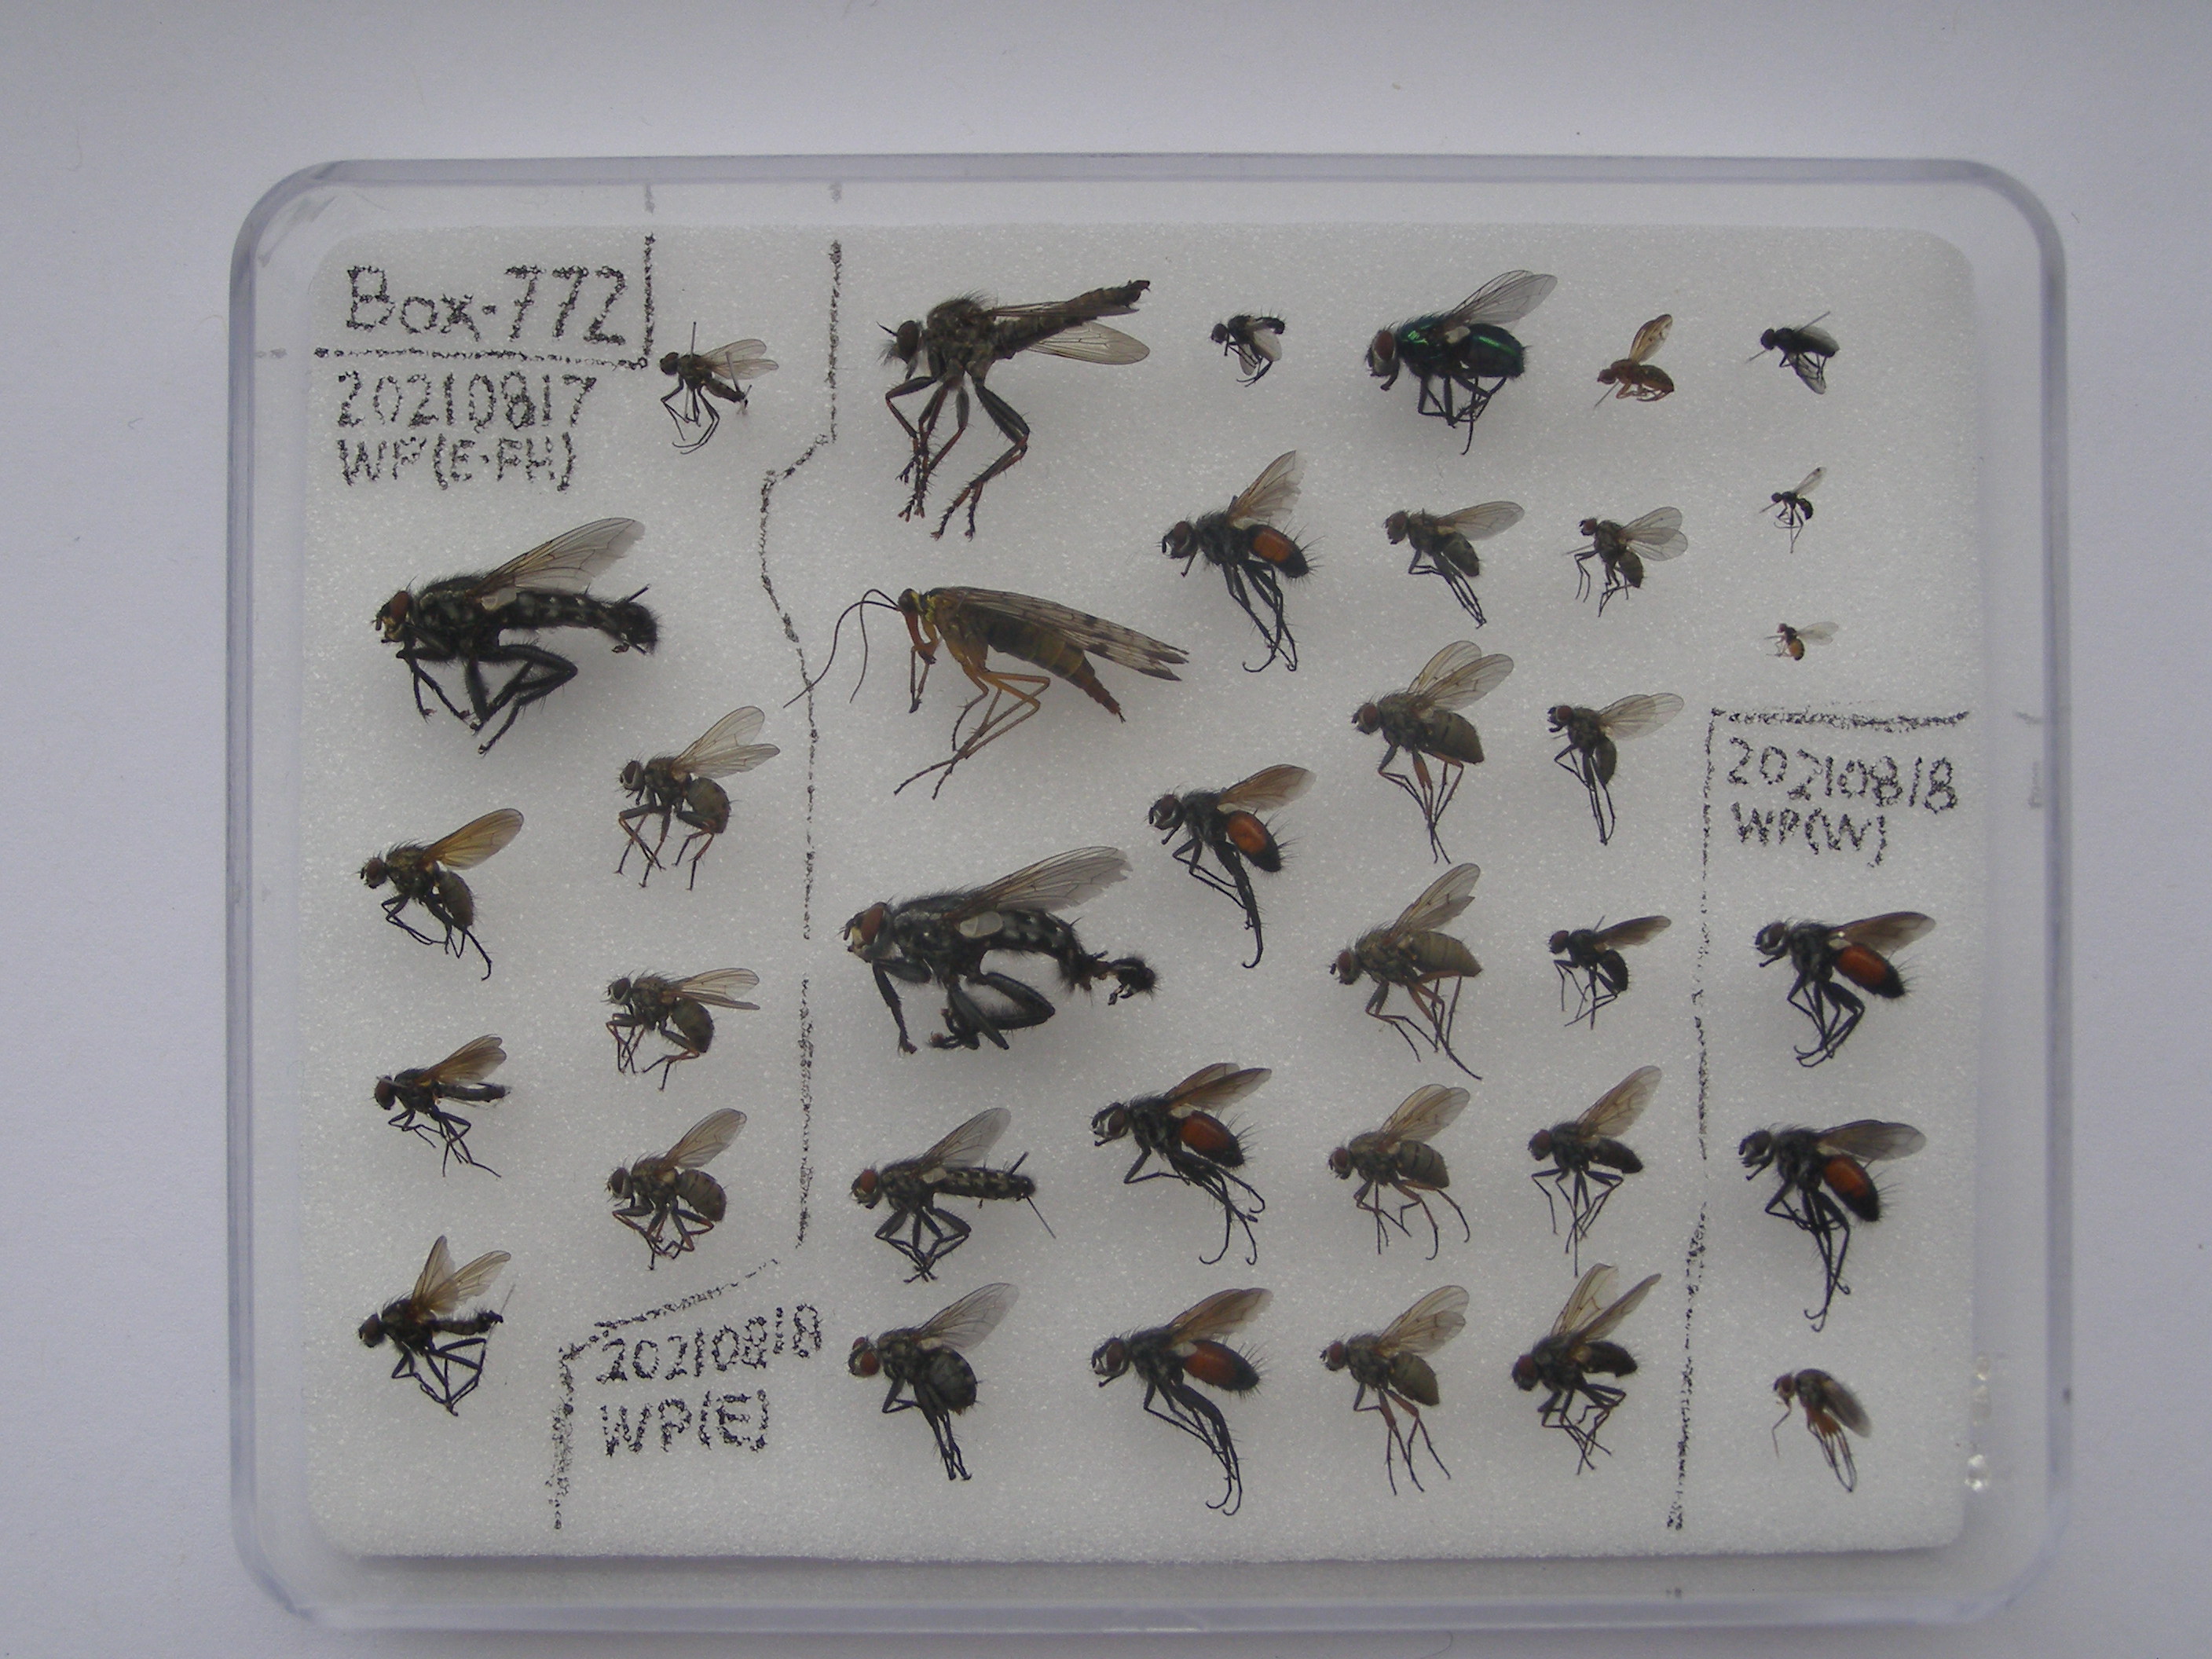 Box-772
20210817
WP(E-FH)
20210818
WP(E)
20210818
WP(W)